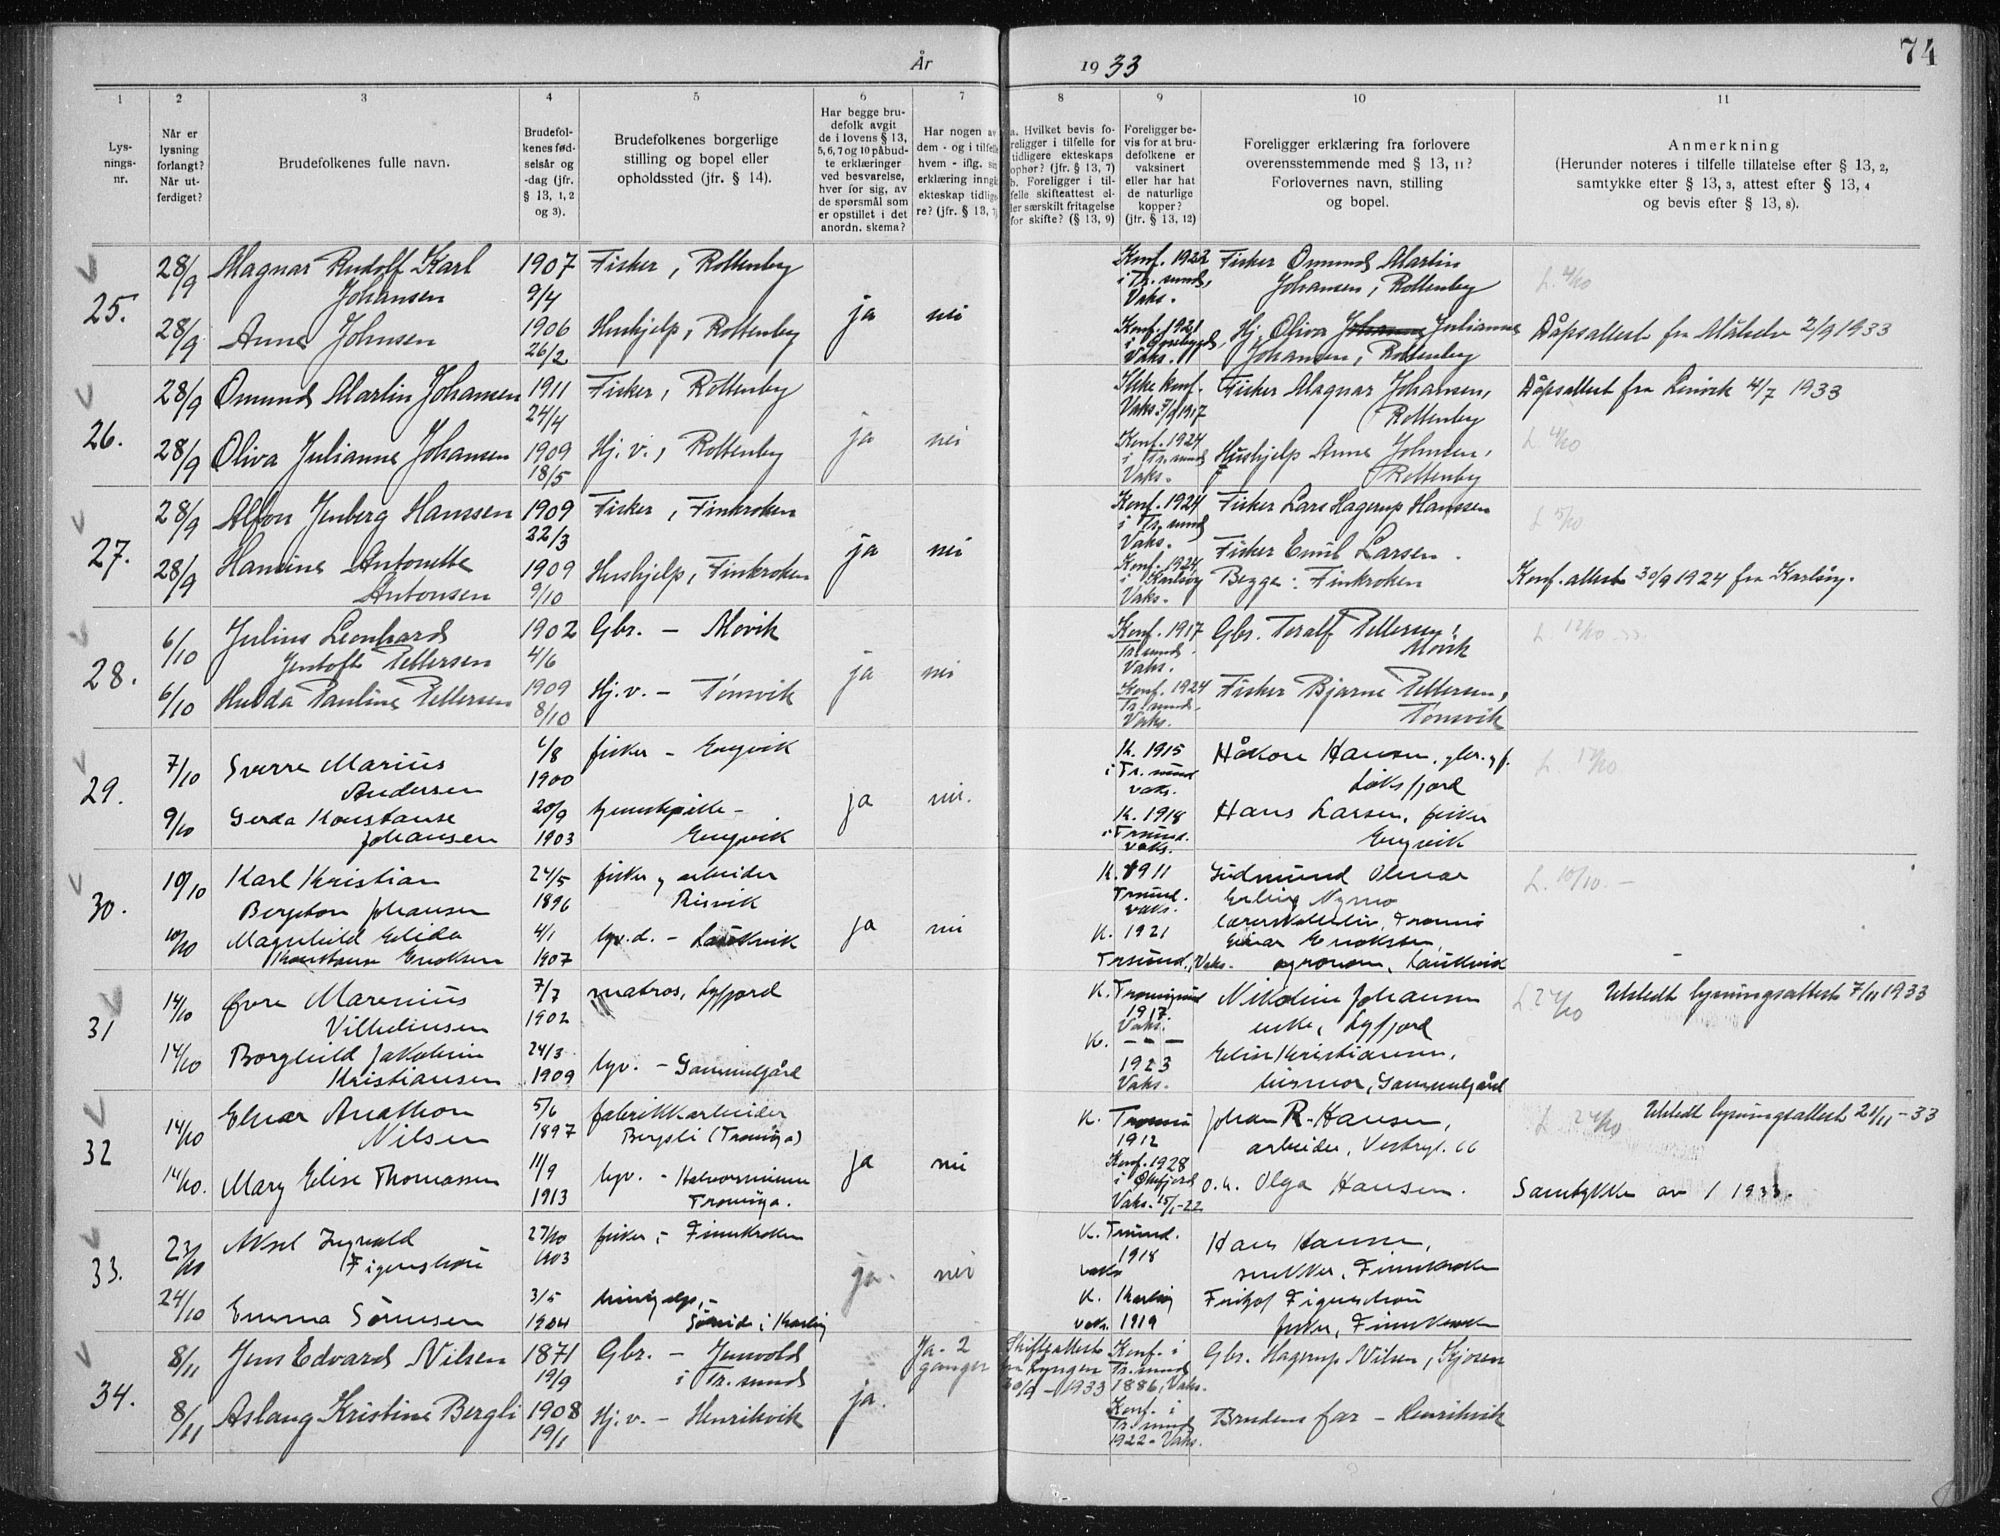 År 1933
74
1 2 3 4 5 6 7 8 9 10 11
Lys-
nings-
nr.
Når er
lysning
forlangt?
Når ut-
ferdiget?
Brudefolkenes fulle navn.
Brudefol-
kenes fød-
selsår og
-dag (jfr.
§ 13, 1, 2
og 3).
Brudefolkenes borgerlige
stilling og bopel eller
opholdssted (jfr. § 14).
Har begge bru-
defolk avgit
de i lovens § 13,
5, 6, 7 og 10 påbud-
te erklæringer
ved besvarelse,
hver for sig, av
de spørsmål som
er opstillet i det
anordn. skema?
Har nogen av
dem - og i tilfelle
hvem - iflg. sin
erklæring inngå
ekteskap tidlige-
re? (jfr. § 13, 7)
a. Hvilket bevis fo-
religger i tilfelle for
tidligere ekteskaps
ophør? (jfr. § 13, 7)
b. Foreligger i til-
felle skifteattest el-
ler særskilt fritagelse
for skifte? (§ 13, 9)
Foreligger be-
vis for at bru-
defolkene er
vaksinert
eller har hat
de naturlige
kopper?
(jfr. § 13, 12)
Foreligger erklæring fra forlovere
overensstemmende med § 13, 11?
Forlovernes navn, stilling
og bopel.
Anmerkning
(Herunder noteres i tilfelle tillatelse efter § 13, 2,
samtykke efter § 13, 3, attest efter § 13, 4
og bevis efter § 13, 8).
25.
28/9 Magnar Rudolf Karl
Johansen
1907
9/4
Fisker, Rottenby
ja nei
Konf. 1922
i Tr.sund,
Vaks.
Fisker Ømund Martin
Johansen, Rottenby
L. 4/10
28/9 Anna Johnsen
1906
26/2
Hushjelp, Rottenby
Konf. 1921
Vaks.
Hj. Oliva Julianne
Johansen, Rottenby
Dåpsattest fra Målselv 2/9 1933
26.
28/9 Ømund Martin Johansen
1911
24/4
Fisker, Rottenby
ja nei
Ikke konf.
Fisker Magnar Johansen,
Rottenby
Dåpsattest fra Lenvik 4/7 1933
28/9 Oliva Julianne Johansen
1909
18/5
Hj. v., Rottenby
Konf. 1924
i Tr.sund
Vaks.
Hushjelp Anna Johnsen,
Rottenby
L. 4/10
27.
28/9 Alfon Jenberg Hanssen
1909
22/3
Fisker, Finkroken
ja nei
Konf. 1924
i Tr.sund
Vaks.
Fisker Lars Hagerup Hanssen
L 5/10
28/9 Hansine Antonette
Antonsen
1909
9/10
Hushjelp, Finkroken
Konf. 1924
i Karlsøy
Vaks.
Fisker Emil Larsen.
Begge: Finkroken
Konf. attest 30/9 1924 fra Karlsøy.
28.
6/10 Julius Leonhard
Jentoft Pettersen
1902
4/6
Gbr. - Movik
ja nei
Konf. 1917
Tr.sund.
Vaks.
Gbr. Toralf Pettersen,
Movik
L. 12/10 33.
6/10 Hulda Pauline Pettersen
1909
8/10
Hj.v. - Tønsvik
Konf. 1924
Tr.sund.
Vaks.
Fisker Bjarne Pettersen,
Tønsvik
29.
7/10 Sverre Marius
Andersen
4/8
1900
fisker - Engvik
ja nei.
K. 1915
i Tr.sund
vaks.
Håkon Hansen, gbr. og f.
Løksfjord
9/10 Gerda Konstanse
Johansen
20/9
1903
Engvik
K. 1918
i Trsund.
vaks.
Hans Larsen, fisker
Engvik
30.
10/10 Karl Kristian
Bergeton Johansen
24/5
1896
fisker og arbeider
Risvik
ja nei
K. 1911
Trsund.
vaks.
Gudmund Olmar
Erling Nymo
Tromsø
L. 10/10. -
10/10 Magnhild Elida
Konstanse Eriksen
4/1
1907
hv.d. - Lauksvik
K. 1921
Trsund., Vaks.
Einar Eriksen,
agronom, Lauksvik
31
14/10 Øvre Marenius
Vilhelmsen
7/7
1902
matros, Lyfjord
K. Tromsøsund
1917
Vaks.
Nikoline Johansen
enke, Lyfjord
L 24/10
Utstedt lysningsattest 7/11 1933
14/10 Borghild Jakobine
Kristiansen
24/3
1909
hv. - Gammelgård
K. - - -
1923
Vaks.
Elise Kristiansen,
husmor, Gammelgård
32
14/10 Einar Anathon
Nilsen
5/6
1897
fabrikkarbeider
Bergsli (Tromsøya)
ja nei
K. Tromsø
1912
Johan R. Hansen,
arbeider, Vestregt. 66
L 24/10
Utstedt lysningsattest 21/11 - 33
14/10. Mary Elise Thomassen
11/9
1913
Tromsøya.
Konf. 1928
i Øksfjord
Vaks. 15/1-22
o.h. Olga Hansen.
Samtykke av 1 1933.
33.
23/10 Aksel Ingvald
Figenschou
27/10
1903
fisker, Finnkroken
ja. nei
K. Trsund.
1918
vaks
Hans Hansen,
snekker, Finnkroken
24/10 Emma Sørensen
3/5
1904
hushjelp, -
i Karlsøy
K. Karlsøy
vaks. 1919
Fritjof Figenschou
fisker, Finnkroken
34.
8/11 Jens Edvard Nilsen
1871
19/9
Gbr. - Jenvold
i Tr.sund
ja.
Ja - 2
ganger
Skifteattest
fra Lyngen
- 1933
Konf. i
Tr.sund
1886, Vaks.
Gbr. Hagerup Nilsen, Kjosen
8/11 Aslaug Kristine Bergli
1908
19/1
Hj.v. - Henrikvik
Konf. i
Tr.sund
1922 - Vaks.
Brudens far - Henrikvik